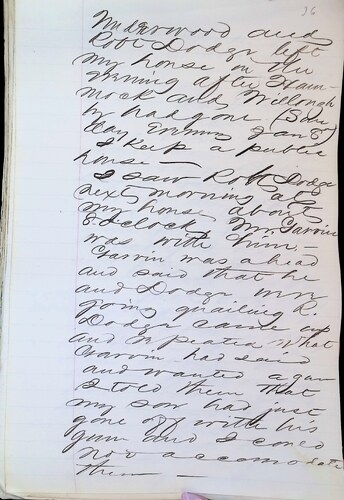 36
Underwood and
Robt Dodge left
my house on the
evening after Ham-
mock and Willough
by had gone (Sun
day Evening Jan 8)
I Keep a public
house —
I saw Robt Dodge
next morning at
my house about
8 oclock Mr. Garvin
was with him. —
Garvin was ahead
and said that he
and Dodge were
going quailing R.
Dodge came up
and repeated what
Garvin had said
and wanted a gun
I told them that
my son had just
gone off with his
gun and I coned
not accomodate
them —